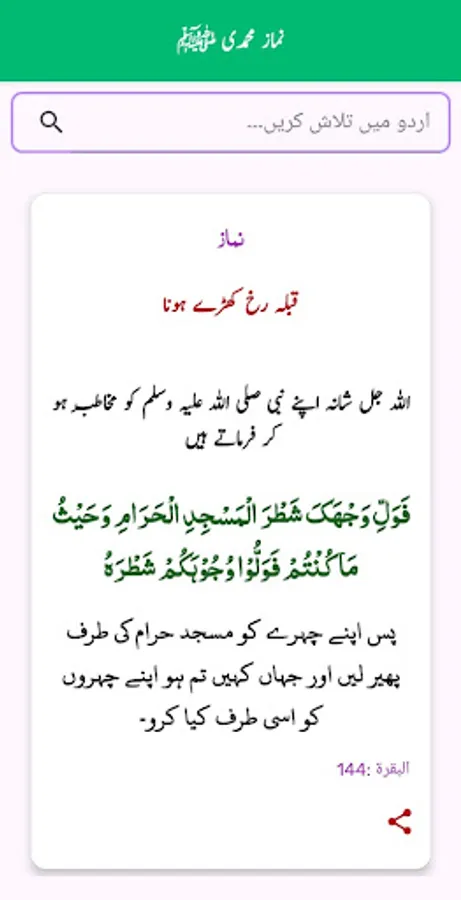 نماز محمدی ﷺ
اردو میں تلاش کریں...
نماز
قبلہ رخ کھڑے ہونا
اللہ جل شانہ اپنے نبی صلی اللہ علیہ وسلم کو مخاطب ہو
کر فرماتے ہیں
فَوَلِّ وَجْهَکَ شَطْرَ الْمَسْجِدِ الْحَرَامِ وَحَیْثُ
مَا کُنْتُمْ فَوَلُّوْا وُجُوْہَکُمْ شَطْرَہٗ
پس اپنے چہرے کو مسجد حرام کی طرف
پھیر لیں اور جہاں کہیں تم ہو اپنے چہروں
کو اسی طرف کیا کرو۔
البقرة :144